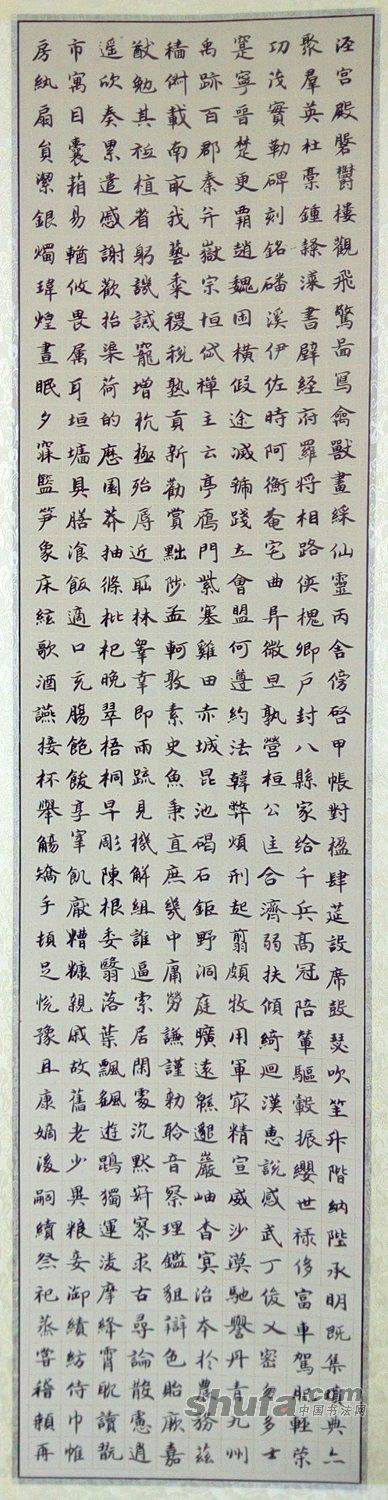 涇宮殿磐鬱樓觀飛驚啚寫禽獸畫綵仙靈丙舍傍啓甲帳對楹肆莚設席鼓瑟吹笙升階納陛承明既集墳典亦
聚羣英杜稾鍾隸漆書壁經府羅將相路俠槐卿戶封八縣家給千兵高冠陪輦驅轂振纓世禄侈富車駕肥輕策
功茂實勒碑刻銘磻溪伊佐時阿衡奄宅曲阜微旦孰營桓公匡合濟弱扶傾綺迴漢惠說感武丁俊乂密勿多士
寔寧晉楚更霸趙魏困橫假途滅虢踐土會盟何遵約法韓弊煩刑起翦頗牧用軍最精宣威沙漠馳譽丹青九州
禹跡百郡秦并嶽宗恒岱禪主云亭鴈門紫塞雞田赤城昆池碣石鉅野洞庭曠遠緜邈巖岫杳冥治本於農務茲
穡俶載南畝我藝黍稷稅熟貢新勸賞黜陟孟軻敦素史魚秉直庶幾中庸勞謙謹勅聆音察理鑑貌辯色貽厥嘉
猷勉其祗植省躬譏誡寵增抗極殆辱近恥林皋幸即兩疏見機解組誰逼索居閑處沉默寂寥求古尋論散慮逍
遙欣奏累遣慼謝歡招渠荷的歷園莽抽條枇杷晚翠梧桐早彫陳根委翳落葉飄颻遊鵾獨運淩摩絳霄耽讀翫
市寓目囊箱易輶攸畏属耳垣墻具膳飡飯適口充腸飽飫享宰飢厭糟糠親戚故舊老少異粮妾御績紡侍巾帷
房紈扇員潔銀燭煒煌晝眠夕寐藍笋象床絃歌酒讌接杯舉觴矯手頓足悅豫且康嫡後嗣續祭祀蒸嘗稽顙再
shufa.com
中国书法网